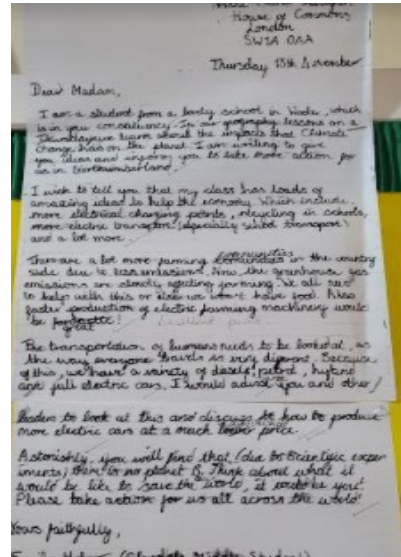 House of Commons
London
SW1A 0AA
Thursday 13th November
Dear Madam,
I am a student from a lovely school in, which
is in your constituency. In our geography lessons on a
Thursday we learn about the impacts that Climate
Change has on the planet. I am writing to give
you ideas and you to take more action for
us in Northumberland.
I wish to tell you that my class has loads of
amazing ideas to help the economy. Which include
more electrical charging points, recycling in schools,
more electric transport (especially school transport)
and a lot more.
There are a lot more farming communities in the country
side due to less emissions. Now the greenhouse gas
emissions are slowly affecting farming. We all need
to help with this or else we won't have food. Also
faster production of electric farming machinery would
be great!
The transportation of humans needs to be looked at, as
the way everyone travels is very diferent. Because
of this, we have a variety of diesel, petrol, hybrid
and full electric cars. I would advise you and other
leaders to look at this and discuss to how to produce
more electric cars at a much lower price.
Astonishly, you will find that (due to Scientific exper
iments) there is no planet B. Think about what it
would be like to save the world, it would be you!
Please take action for us all across the world
Yours faithfully,
Middle Student)